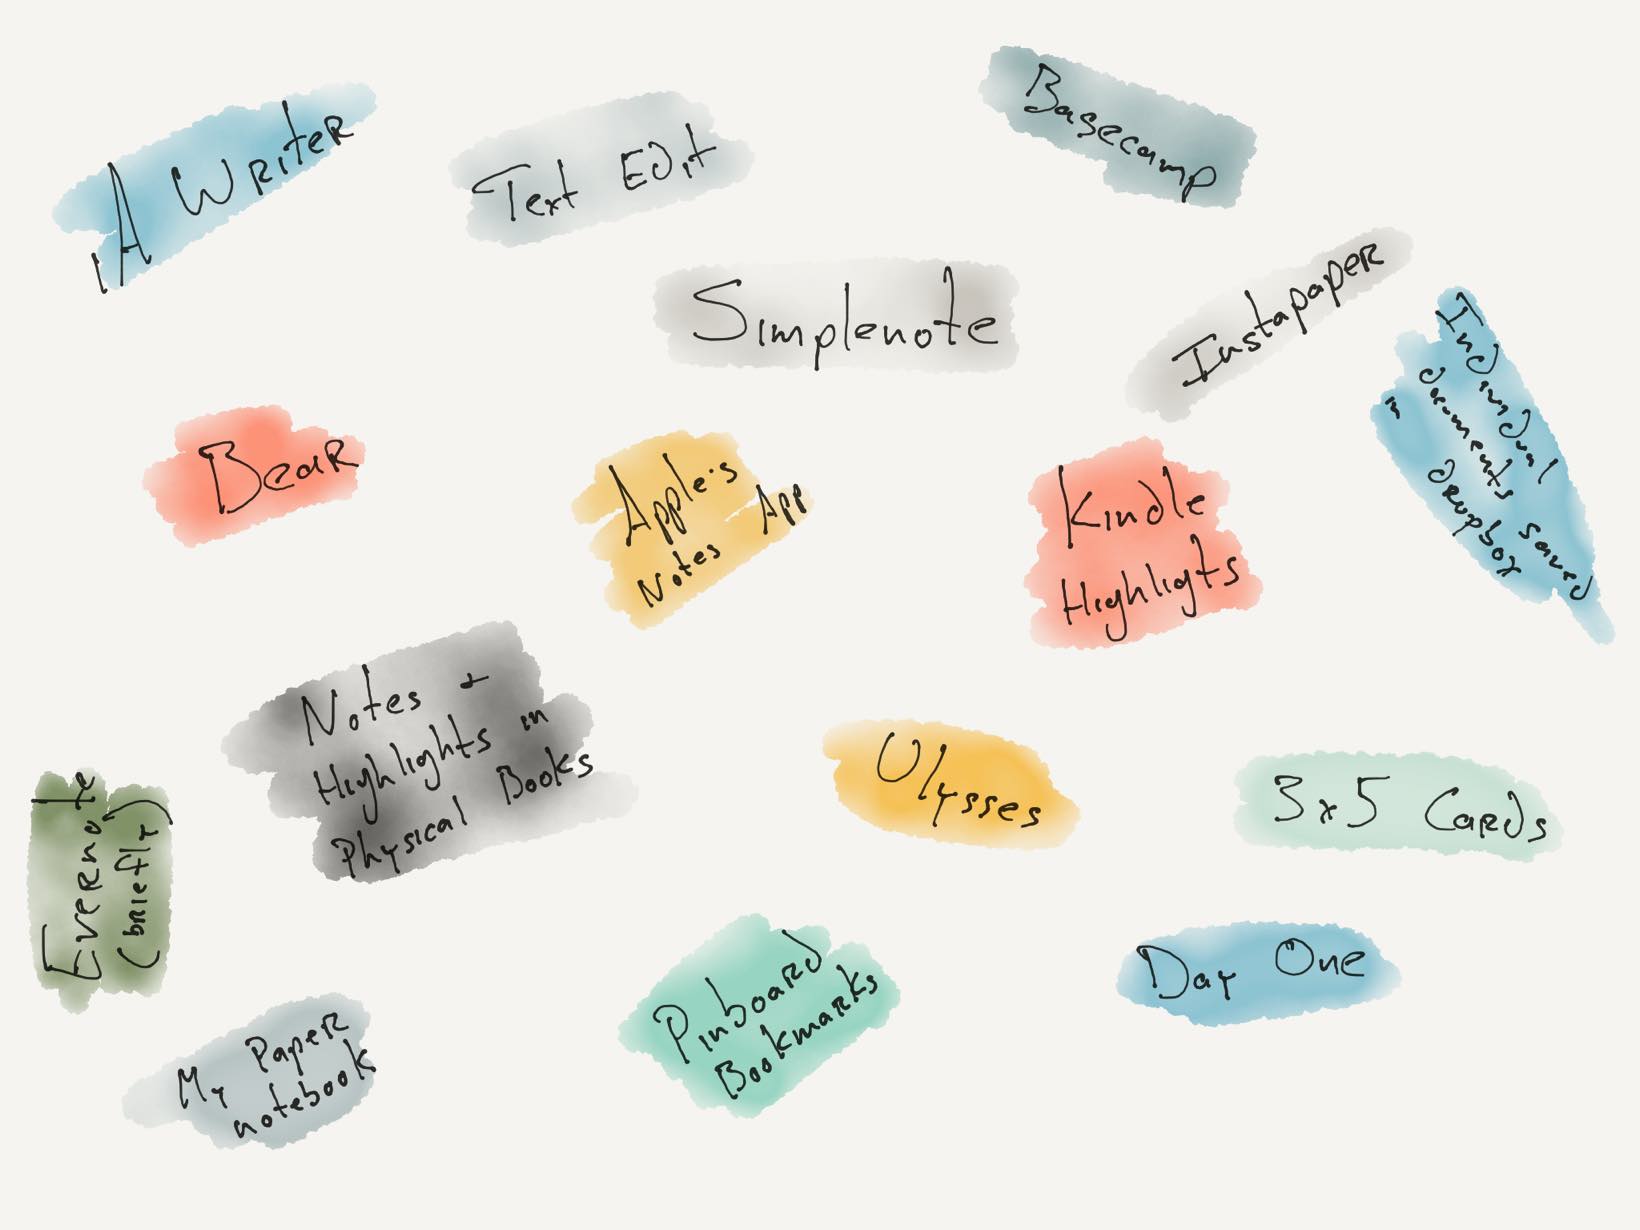 iA Writer
Text Edit
Basecamp
Simplenote
Instapaper
Individual
documents saved
in dropbox
Bear
Apple's
Notes App
Kindle
Highligts
Notes +
Highlights in
Physical Books
Ulysses
3x5 Cards
Evernote
(briefly)
Pinboard
Bookmarks
Day One
My Paper
notebook